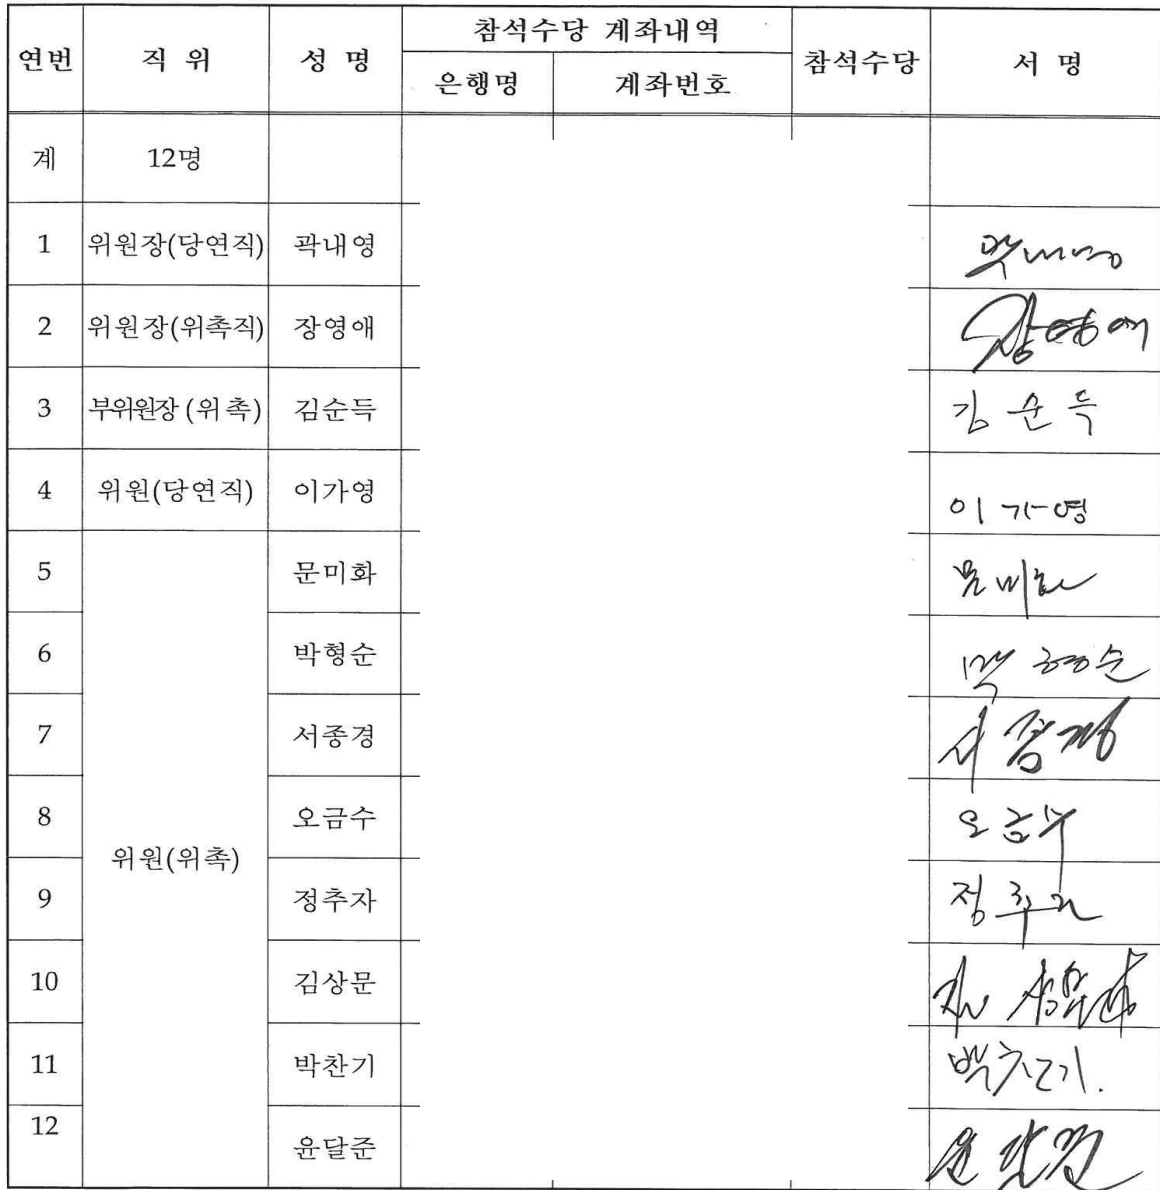 연번 직 위 성 명 참석수당 계좌내역 참석수당 서 명
은행명 계좌번호
계 12명
1 위원장(당연직) 곽내영 곽내영
2 위원장(위촉직) 장영애 장영애
3 부위원장 (위촉) 김순득 김순득
4 위원(당연직) 이가영 이가영
5 문미화 문미화
6 박형순 박형순
7 서종경 서종경
8 오금수 오금수
위원(위촉)
9 정추자 정추자
10 김상문
11 박찬기 박찬기.
12 윤달준 윤달준